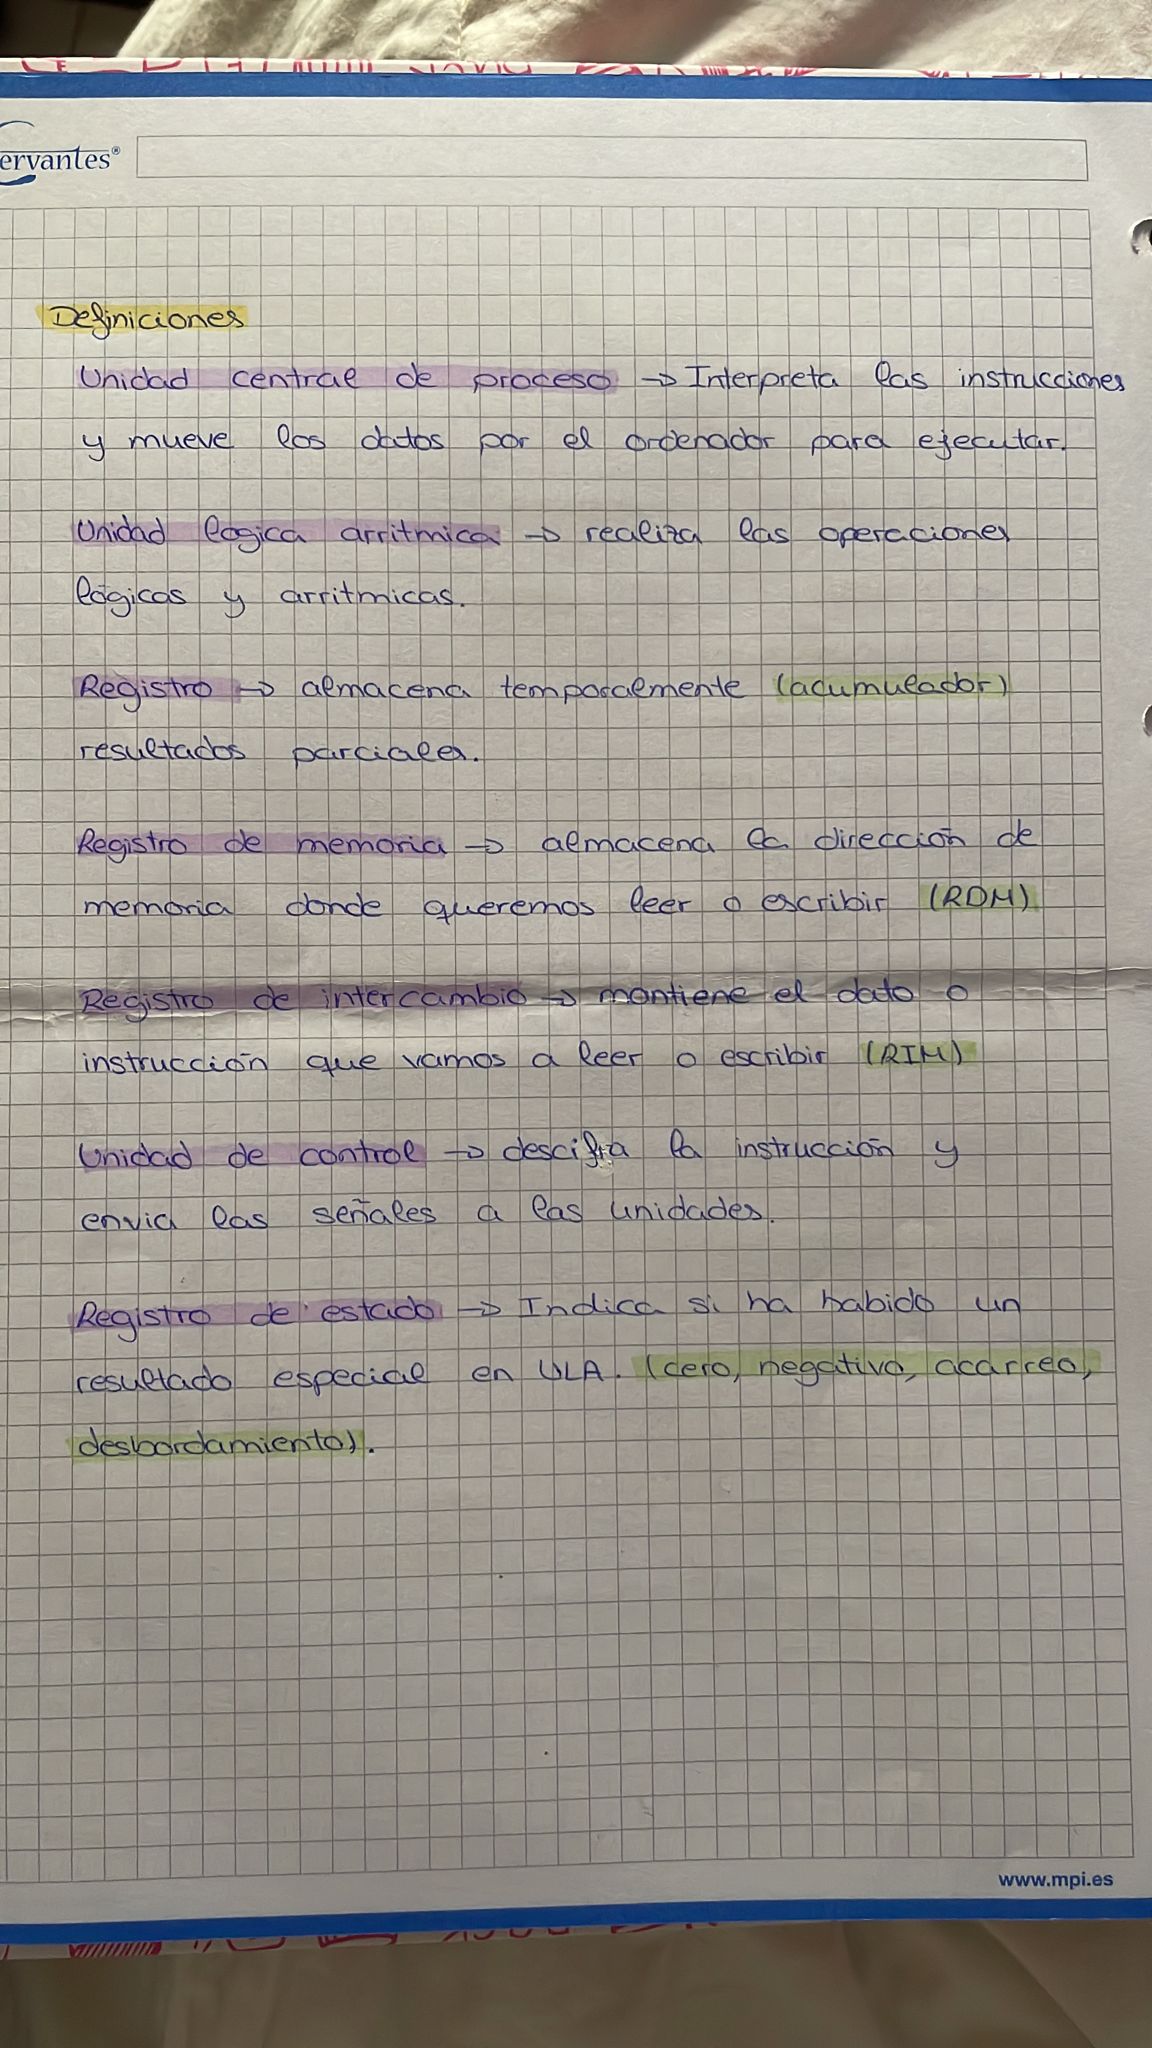 ervantes®
Definiciones
Unidad central de proceso → Interpreta las instrucciones
y mueve los datos por el ordenador para ejecutar.
Unidad lógica arritmica → realiza las operaciones
lógicas y arritmicas.
Registro → almacena temporalmente (acumulador)
resultados parciales.
Registro de memoria → almacena la dirección de
memoria donde queremos leer o escribir (RDM)
Registro de intercambio → mantiene el dato o
instrucción que vamos a leer o escribir (RIM)
Unidad de control → descifra la instrucción y
envia las señales a las unidades.
Registro de estado → Indica si ha habido un
resultado especial en ULA. (cero, negativo, acarreo,
desbordamiento).
www.mpi.es